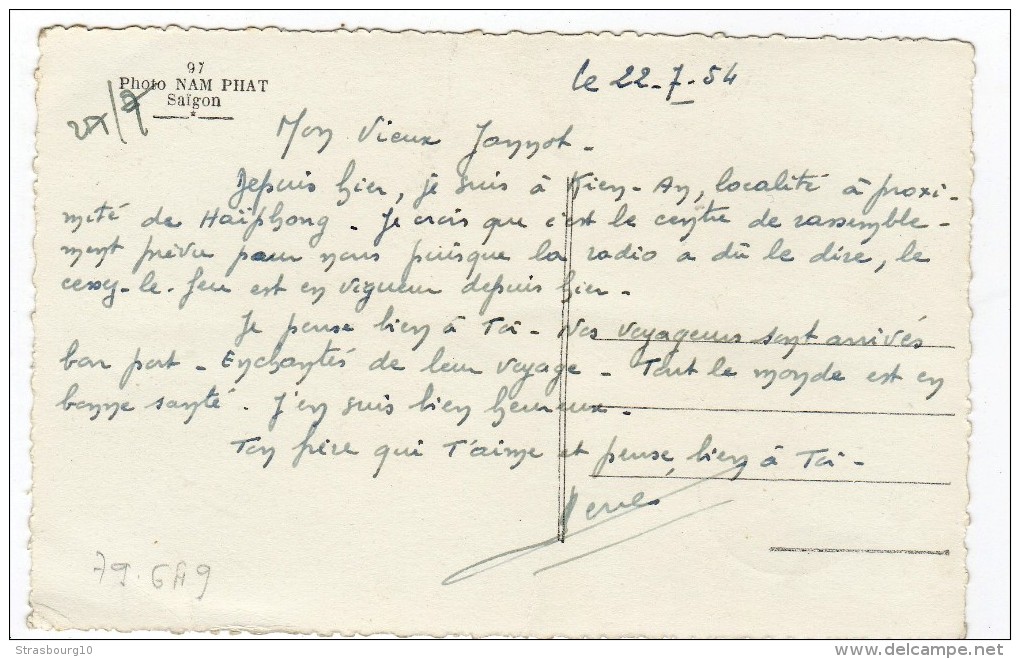 97
Photo NAM PHAT
Saïgon
le 22-7-54
Mon Vieux Jannot -
Depuis hier, je suis à Kien-An, localité à proxi-
mité de Haïphong. Je crois que c'est le centre de rassemble-
ment prévu pour nous puisque la radio a dû le dire, le
cessez-le-feu est en vigueur depuis hier -
Je pense bien à Toi - Nos voyageurs sont arrivés
bon port - Enchantés de leur voyage - Tout le monde est en
bonne santé. J'en suis bien heureux -
Ton frère qui T'aime et pense bien à Toi -
79.6A9
Strasbourg10
delcampe.net